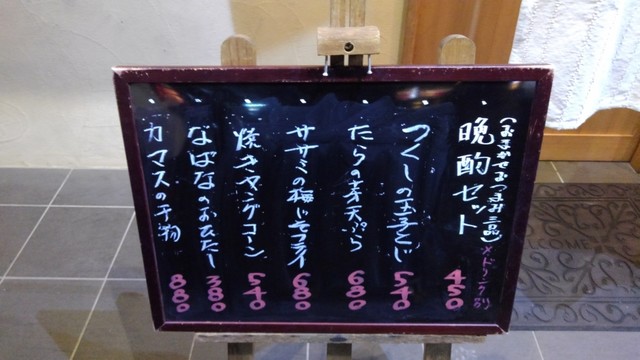 ・晩酌セット 450
(おまかせおつまみ三品)
※ドリンク別
・つくしの玉子とじ 540
・たらの芽天ぷら 680
・ササミの梅じそフライ 680
・焼きヤングコーン 540
・なばなのおひたし 380
・カマスの干物 880
WELCOME